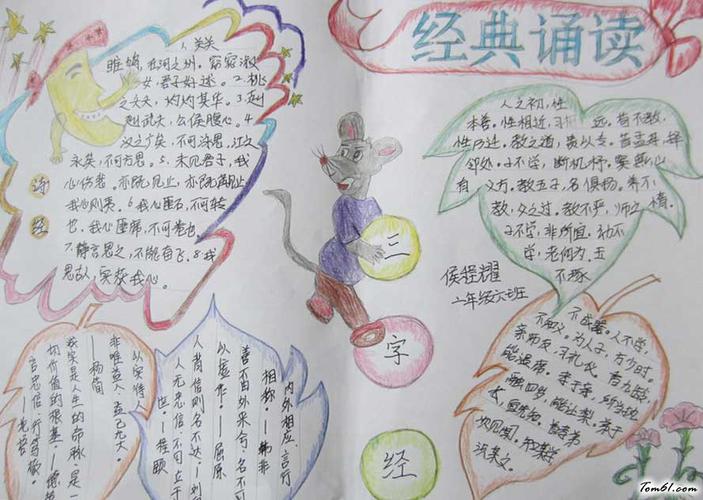 经典诵读
1.关关
雎鸠,在河之州。窈窕淑
女,君子好逑。2.桃
之夭夭,灼灼其华。3.赳
赳武夫,公候腹心。4
汉之广矣,不可泳思。江之
永矣,不可方思。5.未见君子,我
心伤者。亦既见止,亦既觏止
我心则夷。6.我心匪石,不可转
也,我心匪席,不可卷也
7.静言思之,不能奋飞。8.我
思古人,实获我心。
诗经
人之初,性
本善。性相近,习相远。苟不教,
性乃迁。教之道,贵以专。昔孟母,择
邻处。子不学,断机杼。窦燕山
有义方。教五子,名俱扬。养不
教,父之过。教不严,师之惰。
子不学,非所宜。幼不
学,老何为。玉
不琢
三字经
侯程耀
二年级六班
不成器。人不学,
不知义。为人子,方少时。
亲师友,习礼仪。香九龄,
能温席。孝于亲,所当执
融四岁,能让梨。弟于
长,宜先知。首孝弟
次见闻。知某数
识某文。
内外相应,言行
相称。——韩非
善不由外来兮,名不可
以虚作。——屈原
人背信则名不达。——刘
人无忠信,不可立于
也——程颐
以实待
非唯益人,益己尤大。
——杨简
诚实是人生的命脉,是一
切价值的根基——德莱
Tom61.com